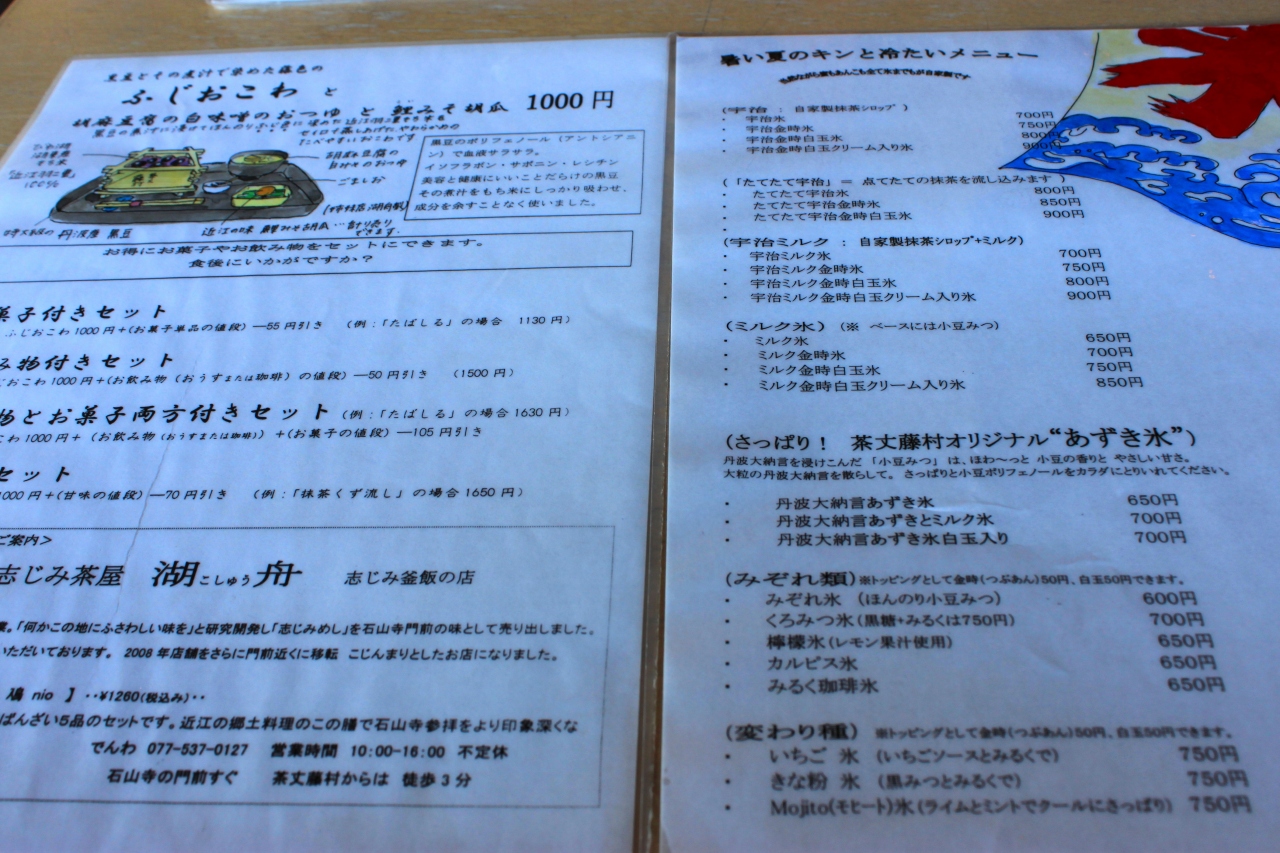 黒豆とその煮汁で染めた藤色の
ふじおこわ と
胡麻豆腐の白味噌のおつゆ と 鯉みそ胡瓜 1000円
黒豆のポリフェノール（アントシアニ
ン）で血液サラサラ。
イソフラボン・サポニン・レシチン
美容と健康にいいことだらけの黒豆
その煮汁をもち米にしっかり吸わせ、
成分を余すことなく使いました。
胡麻豆腐の
白みそのおつゆ
ごましお
丹波産 黒豆
お得にお菓子やお飲み物をセットにできます。
食後にいかがですか？
菓子付きセット
ふじおこわ1000円＋(お菓子単品の値段)―55円引き （例：「たばしる」の場合 1130円）
み物付きセット
じおこわ1000円＋(お飲み物（おうすまたは珈琲）の値段)―50円引き （1500円）
物とお菓子両方付きセット（例：「たばしる」の場合1630円）
こわ1000円＋（お飲み物（おうすまたは珈琲））＋(お菓子の値段)―105円引き
セット
1000円＋(甘味の値段)―70円引き （例：「抹茶くず流し」の場合1650円）
ご案内＞
志じみ茶屋 湖こしゅう舟 志じみ釜飯の店
業。「何かこの地にふさわしい味を」と研究開発し「志じみめし」を石山寺門前の味として売り出しました。
いただいております。 2008年店舗をさらに門前近くに移転 こじんまりとしたお店になりました。
鳰 nio 】‥¥1260(税込み)‥
ばんざい5品のセットです。近江の郷土料理のこの膳で石山寺参拝をより印象深くな
でんわ 077-537-0127 営業時間 10:00-16:00 不定休
石山寺の門前すぐ 茶丈藤村からは 徒歩3分
暑い夏のキンと冷たいメニュー
(宇治 ： 自家製抹茶ｼﾛｯﾌﾟ )
・ 宇治氷 700円
・ 宇治金時氷 750円
・ 宇治金時白玉氷 800円
・ 宇治金時白玉クリーム入り氷 900円
(「たてたて宇治」＝ 点てたての抹茶を流し込みます )
・ たてたて宇治氷 800円
・ たてたて宇治金時氷 850円
・ たてたて宇治金時白玉氷 900円
・
(宇治ミルク ： 自家製抹茶ｼﾛｯﾌﾟ+ミルク)
・ 宇治ミルク氷 700円
・ 宇治ミルク金時氷 750円
・ 宇治ミルク金時白玉氷 800円
・ 宇治ミルク金時白玉クリーム入り氷 900円
(ミルク氷) (※ ベースには小豆みつ)
・ ミルク氷 650円
・ ミルク金時氷 700円
・ ミルク金時白玉氷 750円
・ ミルク金時白玉クリーム入り氷 850円
(さっぱり！ 茶丈藤村オリジナル“あずき氷”)
丹波大納言を浸けこんだ 「小豆みつ」は、ほわ～っと 小豆の香りと やさしい甘さ。
大粒の丹波大納言を散らして。さっぱりと小豆ポリフェノールをカラダにとりいれてください。
・ 丹波大納言あずき氷 650円
・ 丹波大納言あずきとミルク氷 700円
・ 丹波大納言あずき氷白玉入り 700円
(みぞれ類)※トッピングとして金時(つぶあん)50円、白玉50円できます。
・ みぞれ氷 (ほんのり小豆みつ) 600円
・ くろみつ氷(黒糖+みるくは750円) 700円
・ 檸檬氷(レモン果汁使用) 650円
・ カルピス氷 650円
・ みるく珈琲氷 650円
(変わり種) ※トッピングとして金時(つぶあん)50円、白玉50円できます。
・ いちご 氷 (いちごソースとみるくで) 750円
・ きな粉 氷 (黒みつとみるくで) 750円
・ Mojito(モヒート)氷(ライムとミントでクールにさっぱり) 750円